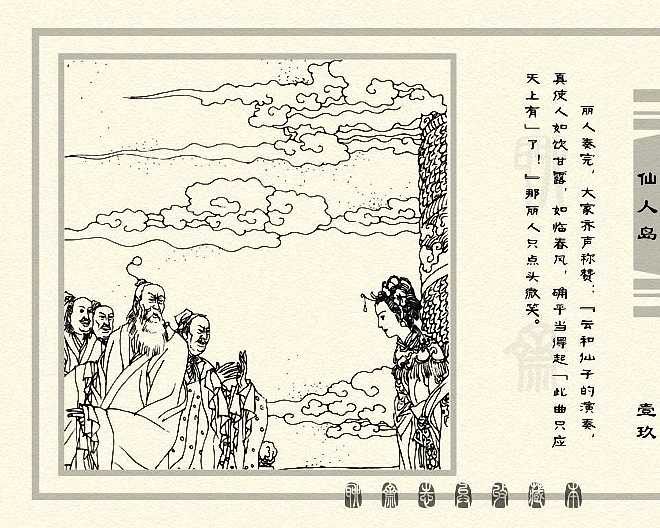 丽人奏完，大家齐声称赞：『云和仙子的演奏，
真使人如饮甘露，如临春风，确乎当得起「此曲只应
天上有」了！』那丽人只点头微笑。
仙人岛
壹玖